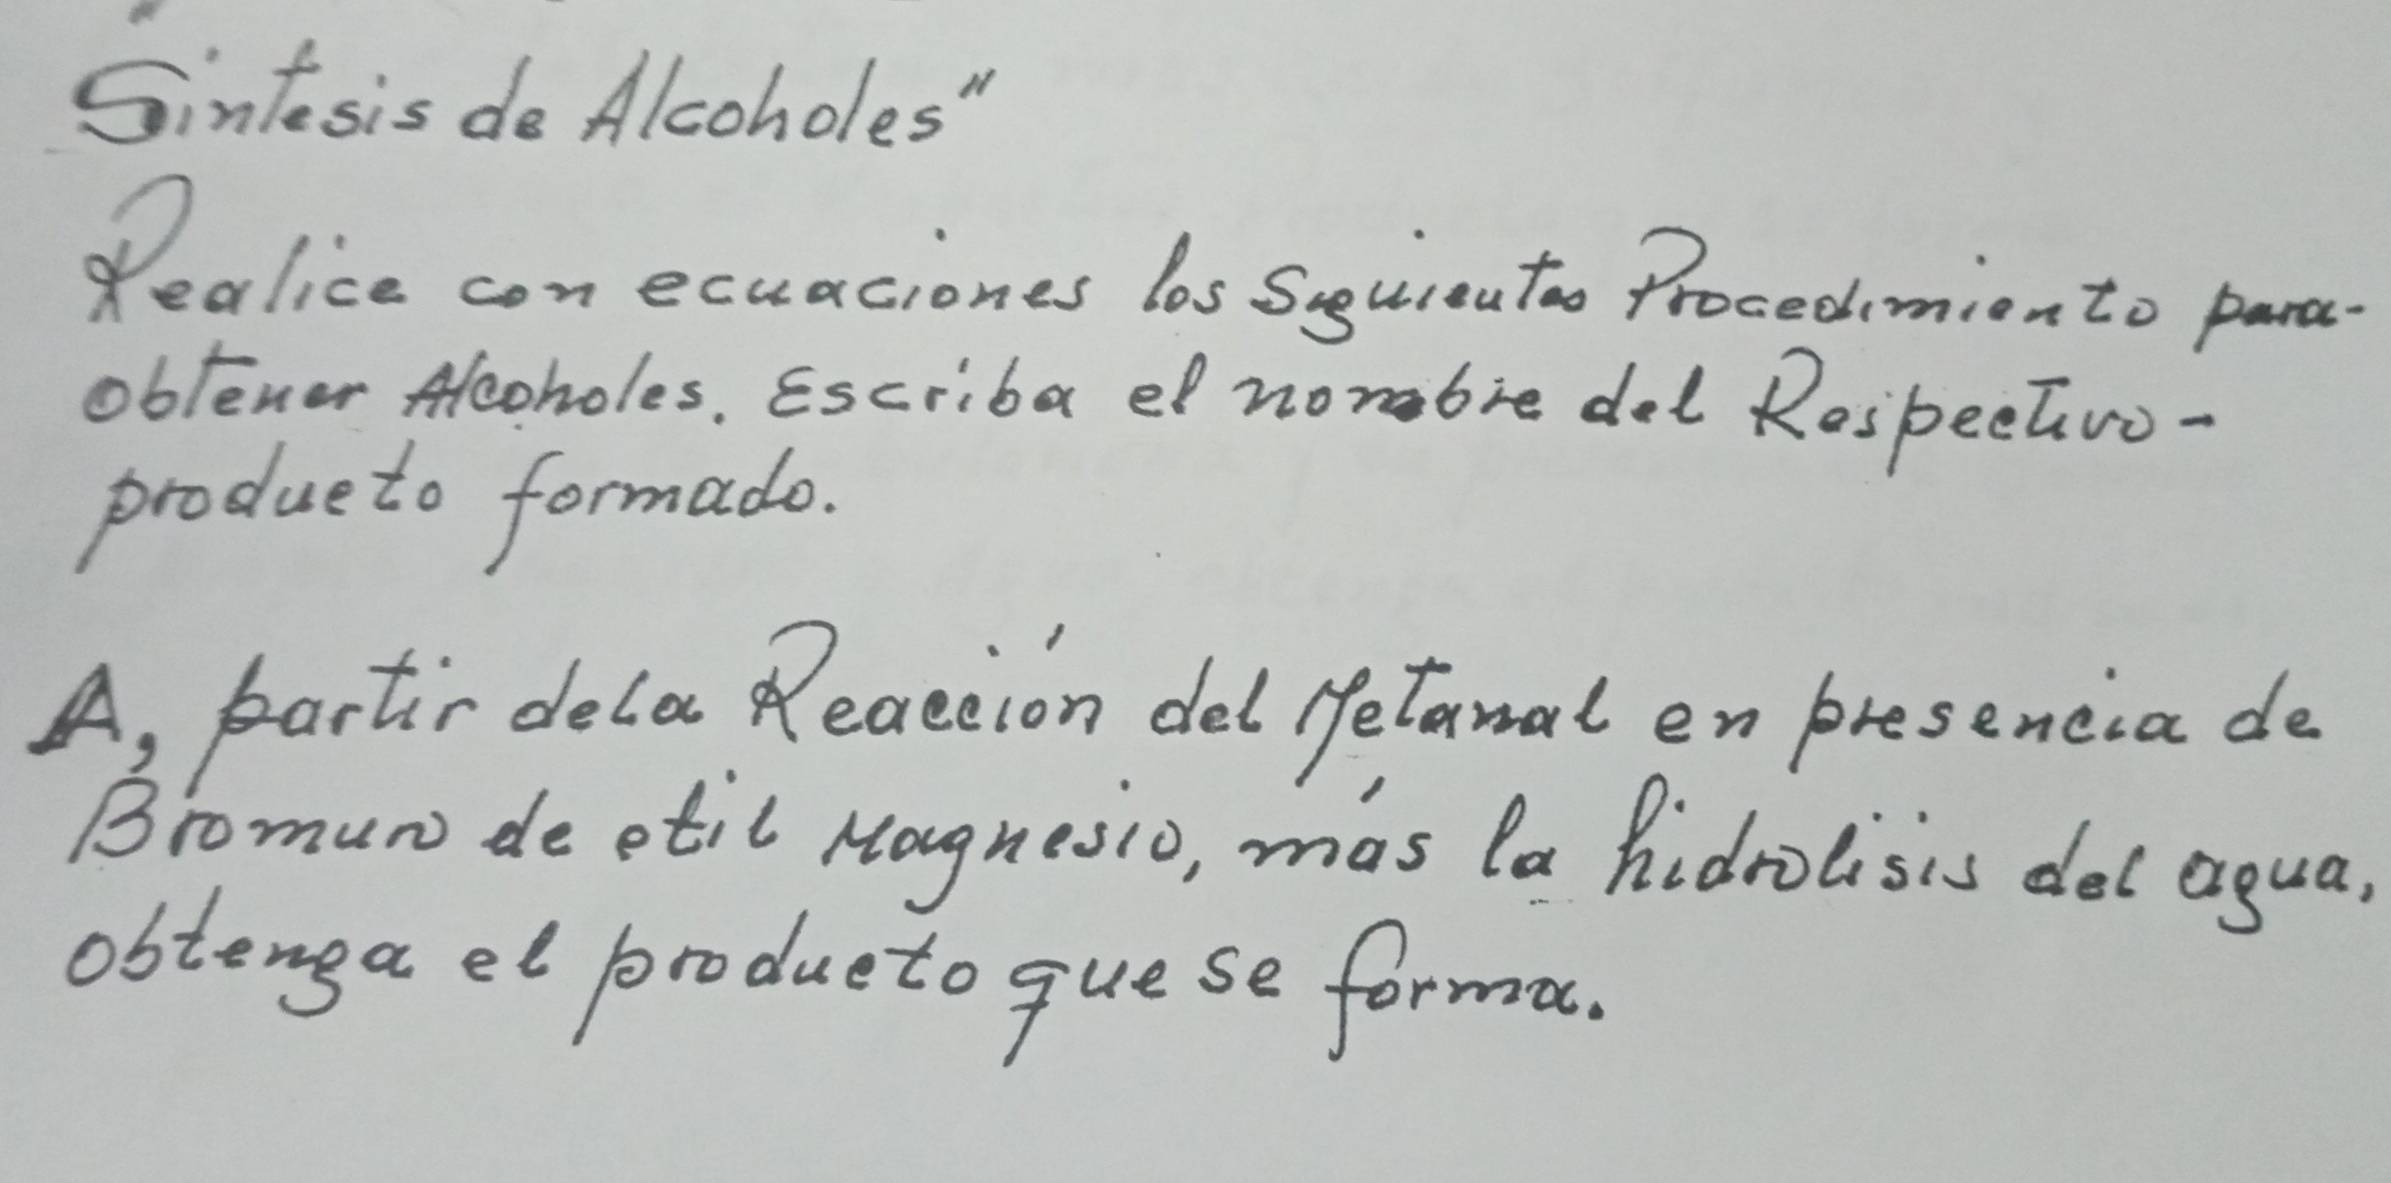 "
Síntesis de Alcoholes"
Realice con ecuaciones los Siguientes Procedimiento para-
obtener Alcoholes. Escriba el nombre del Respectivo-
producto formado.
A, partir dela Reacción del Metanal en presencia de
Bromuro de etil Magnesio, más la hidrolisis del agua,
obtenga el producto que se forma.